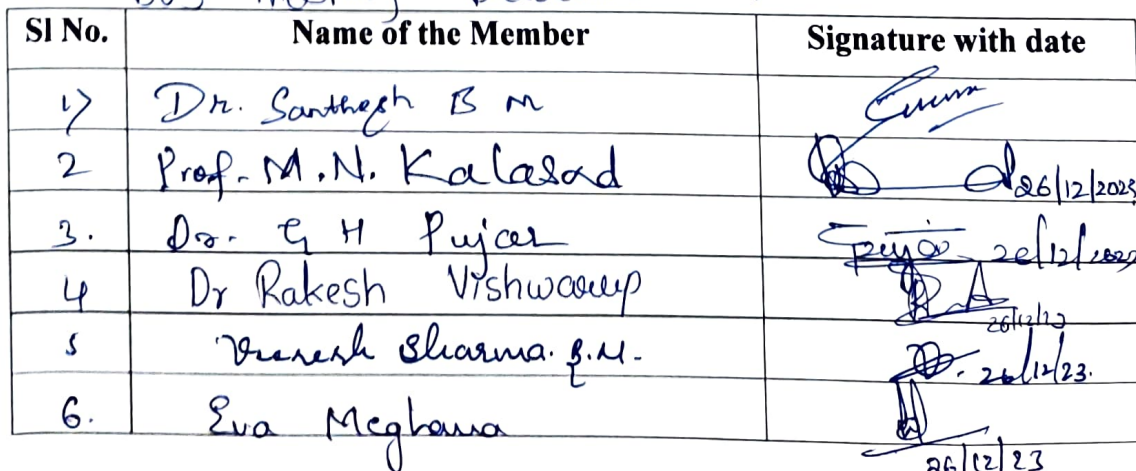 Sl No. Name of the Member Signature with date
1) Dr. Santhosh B M
2 Prof. M.N. Kalasad 26/12/2023
3. Dr. G H Pujar 26/12/2023
4 Dr Rakesh Vishwaroop 26/12/23
5 Sharma. B.M. 26/12/23.
6. Eva Meghana 26/12/23